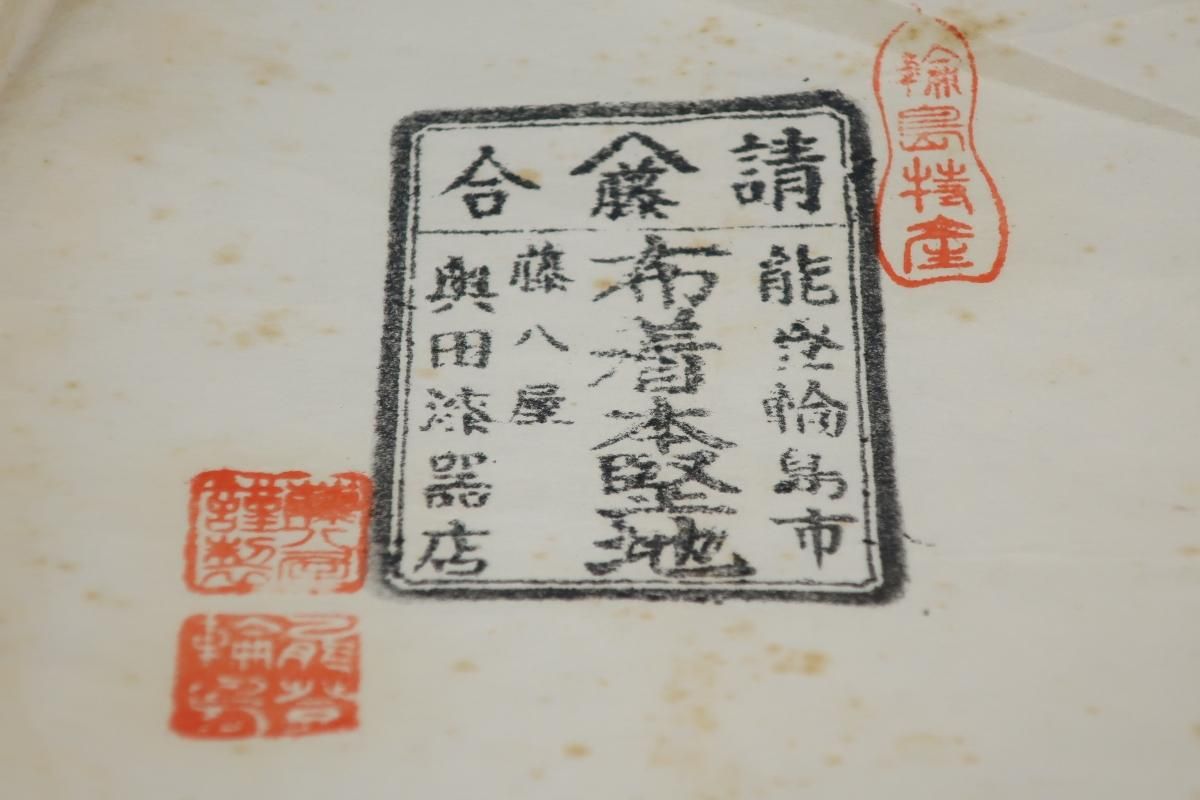 輪島特産
請 藤 合
能登輪島市
布着本堅地
藤八屋
奥田漆器店
藤八屋
謹製
能登
輪島